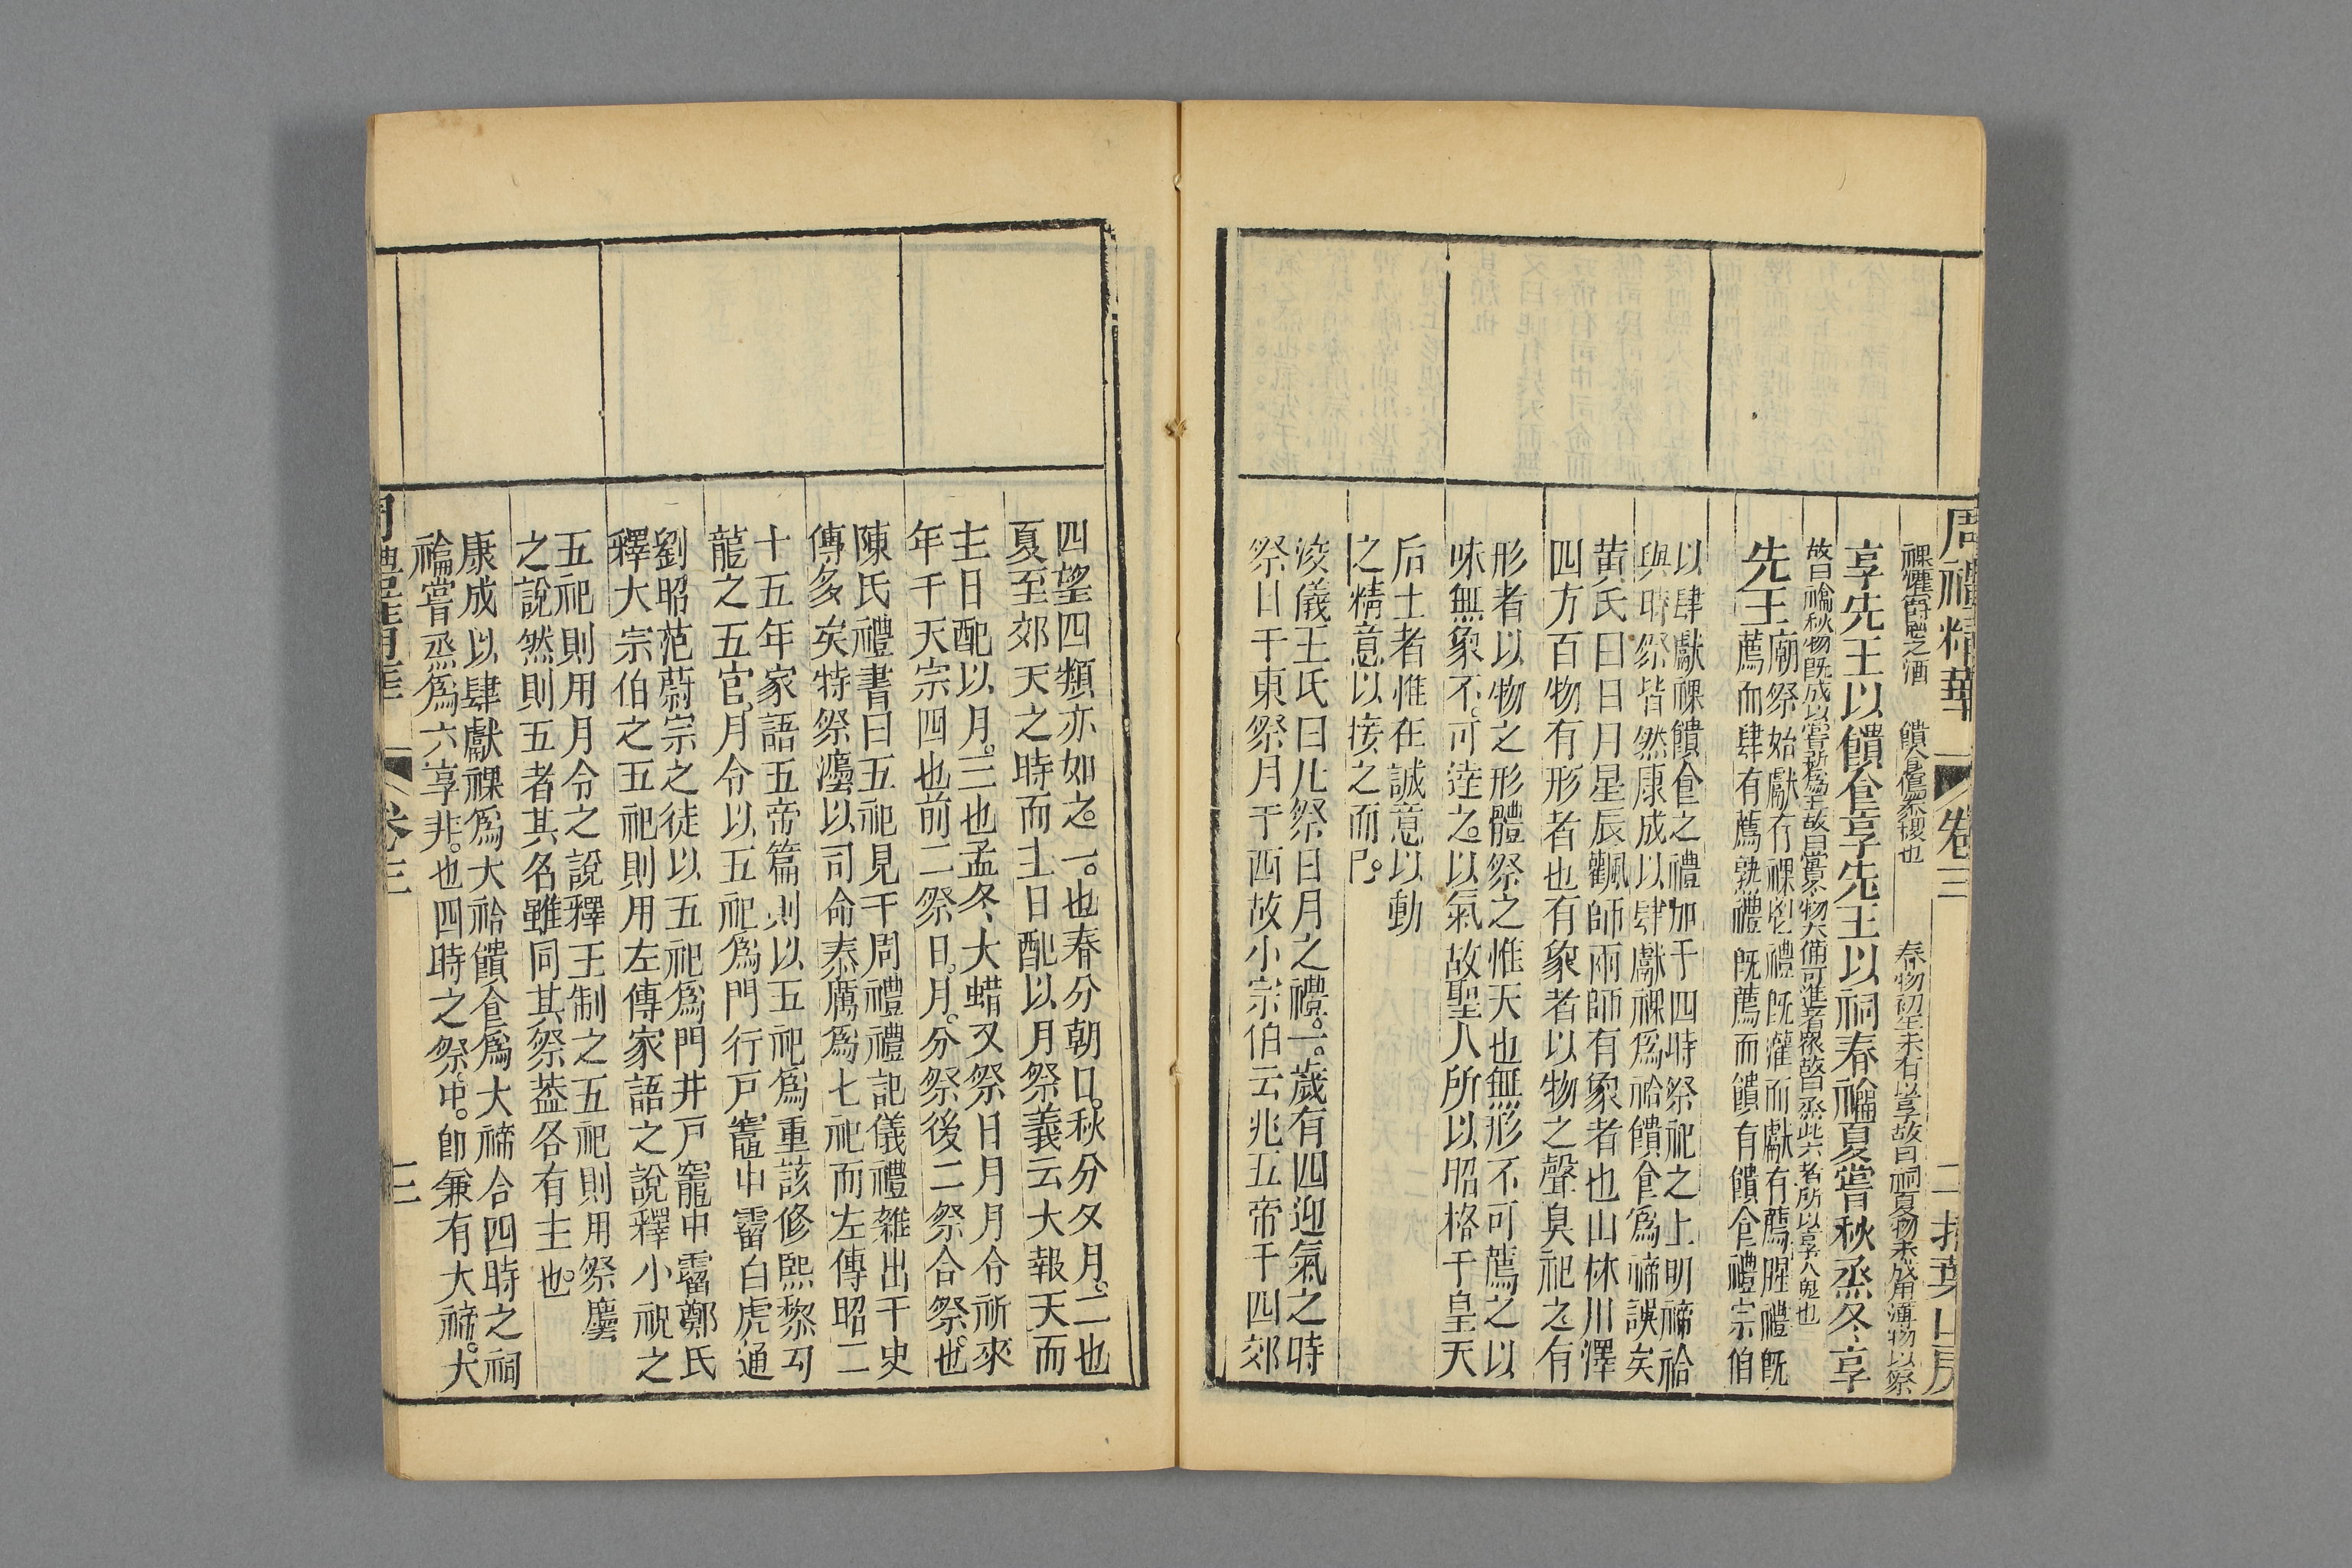 周禮精華 卷三 二 掃葉山房
祼灌鬱鬯之酒 饋食薦黍稷也 春物初生未有以享故曰祠夏物未成用薄物以祭
享先王以饋食享先王以祠春禴夏嘗秋烝冬享
故曰禴秋物既成以嘗新爲主故曰嘗冬物大備可進者衆故曰烝此六者所以享人鬼也
先王
廟祭始獻有祼鬯禮既灌而獻有薦腥禮既
薦而肆有薦孰禮既薦而饋有饋食禮宗伯
以肆獻祼饋食之禮加于四時祭祀之上明禘祫
與時祭皆然康成以肆獻祼爲祫饋食爲禘誤矣
黄氏曰日月星辰飌師雨師有象者也山林川澤
四方百物有形者也有象者以物之聲臭祀之有
形者以物之形體祭之惟天也無形不可薦之以
味無象不可達之以氣故聖人所以昭格于皇天
后土者惟在誠意以動
之精意以接之而已
浚儀王氏曰凡祭日月之禮一歲有四迎氣之時
祭日于東祭月于西故小宗伯云兆五帝于四郊
四望四類亦如之一也春分朝日秋分夕月二也
夏至郊天之時而主日配以月祭義云大報天而
主日配以月三也孟冬大蜡又祭日月月令祈來
年于天宗四也前二祭日月分祭後二祭合祭也
陳氏禮書曰五祀見于周禮禮記儀禮雜出于史
傳多矣特祭灋以司命泰厲爲七祀而左傳昭二
十五年家語五帝篇則以五祀爲重該修熙黎勾
龍之五官月令以五祀爲門行戸竈中霤白虎通
劉昭范蔚宗之徒以五祀爲門井戸竈中霤鄭氏
釋大宗伯之五祀則用左傳家語之說釋小祝之
五祀則用月令之說釋王制之五祀則用祭灋
之說然則五者其名雖同其祭葢各有主也
康成以肆獻祼爲大祫饋食爲大禘合四時之祠
禴嘗烝爲六享非也四時之祭中卽兼有大禘大
卷三 三